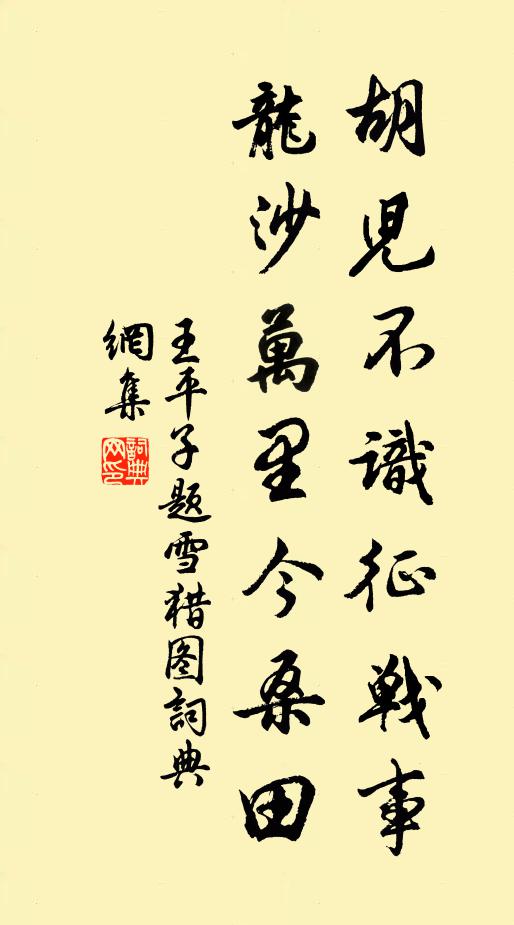 胡兒不識征戰事
龍沙萬里今桑田
王平子题雪猎图詞典
網集
詞典
网印